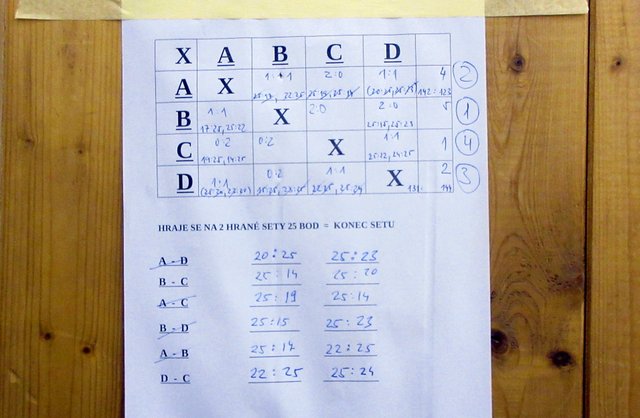 X A B C D
A X 1:1 2:0 1:1 4 2
22:25 142:123
B 1:1 X 2:0 2:0 5 1
17:25, 25:22 25:15, 25:23
C 0:2 0:2 X 1:1 1 4
19:25, 14:25 25:22, 24:25
D 1:1 0:2 1:1 X 2 3
22:25, 25:24
HRAJE SE NA 2 HRANÉ SETY 25 BOD = KONEC SETU
A - D 20:25 25:23
B - C 25:14 25:20
A - C 25:19 25:14
B - D 25:15 25:23
A - B 25:17 22:25
D - C 22:25 25:24